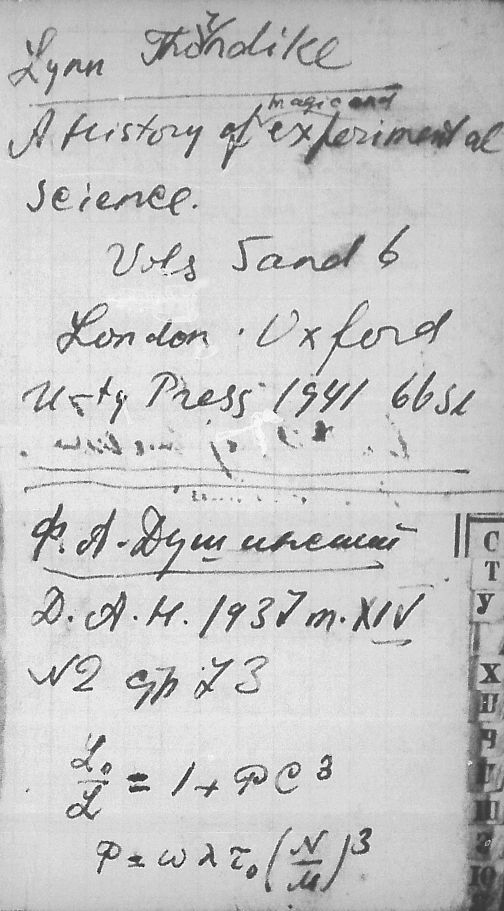 Lynn Thorndike
magic and
A History of experimental
science.
Vols 5 and 6
London. Oxford
U-ty Press 1941
Ф. А. Душинский
Д. А. Н. 1937 т. XIV
N2 стр 73
L₀/L = 1 + PC³
P = ωλτ₀(N/M)³
С
Т
У
Х
Ц
Ч
Ш
Щ
Э
Ю